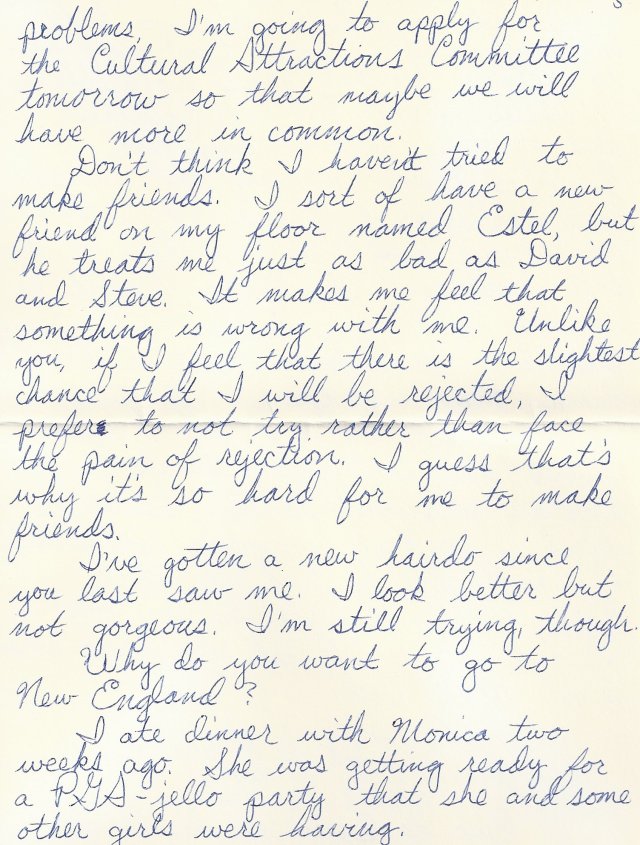 problems. I'm going to apply for
the Cultural Attractions Committee
tomorrow so that maybe we will
have more in common.
Don't think I haven't tried to
make friends. I sort of have a new
friend on my floor named Estel, but
he treats me just as bad as David
and Steve. It makes me feel that
something is wrong with me. Unlike
you, if I feel that there is the slightest
chance that I will be rejected, I
prefer to not try rather than face
the pain of rejection. I guess that's
why it's so hard for me to make
friends.
I've gotten a new hairdo since
you last saw me. I look better but
not gorgeous. I'm still trying, though.
Why do you want to go to
New England?
I ate dinner with Monica two
weeks ago. She was getting ready for
a PGA-jello party that she and some
other girls were having.